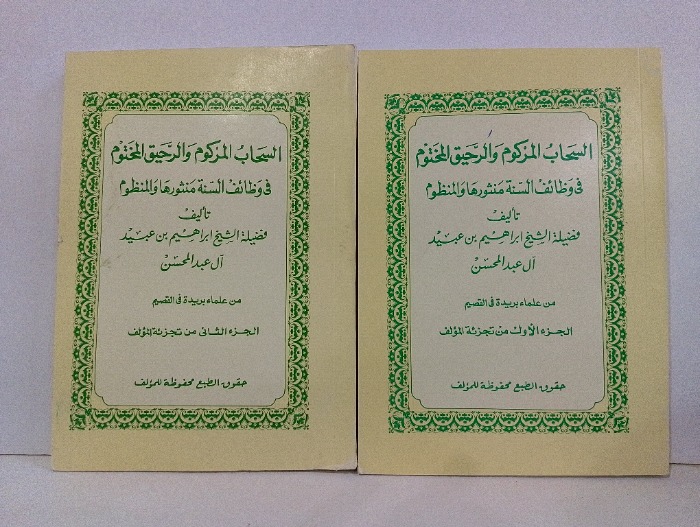 السحاب المركوم والرحيق المختوم
في وظائف السنة منثورها والمنظوم
تأليف
فضيلة الشيخ ابراهيم بن عبيد
آل عبد المحسن
من علماء بريدة في القصيم
الجزء الأول من تجزئة المؤلف
حقوق الطبع محفوظة للمؤلف
السحاب المركوم والرحيق المختوم
في وظائف السنة منثورها والمنظوم
تأليف
فضيلة الشيخ ابراهيم بن عبيد
آل عبد المحسن
من علماء بريدة في القصيم
الجزء الثاني من تجزئة المؤلف
حقوق الطبع محفوظة للمؤلف